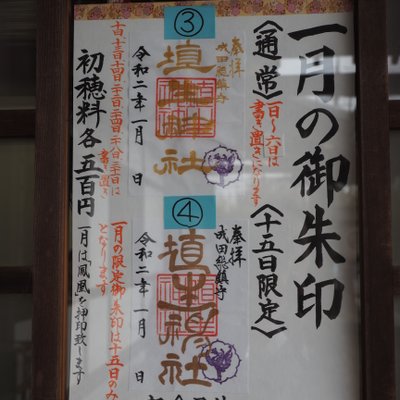 一月の御朱印
〈通常〉
一日〜六日は
書き置きになります
〈十五日限定〉
③
奉拝
成田総鎮守
埴生神社
令和二年一月　日
書き置き
④
奉拝
成田総鎮守
埴生神社
令和二年一月　日
一月の限定御朱印は十五日のみ
となります
初穂料各五百円
一月は「鳳凰」を押印致します